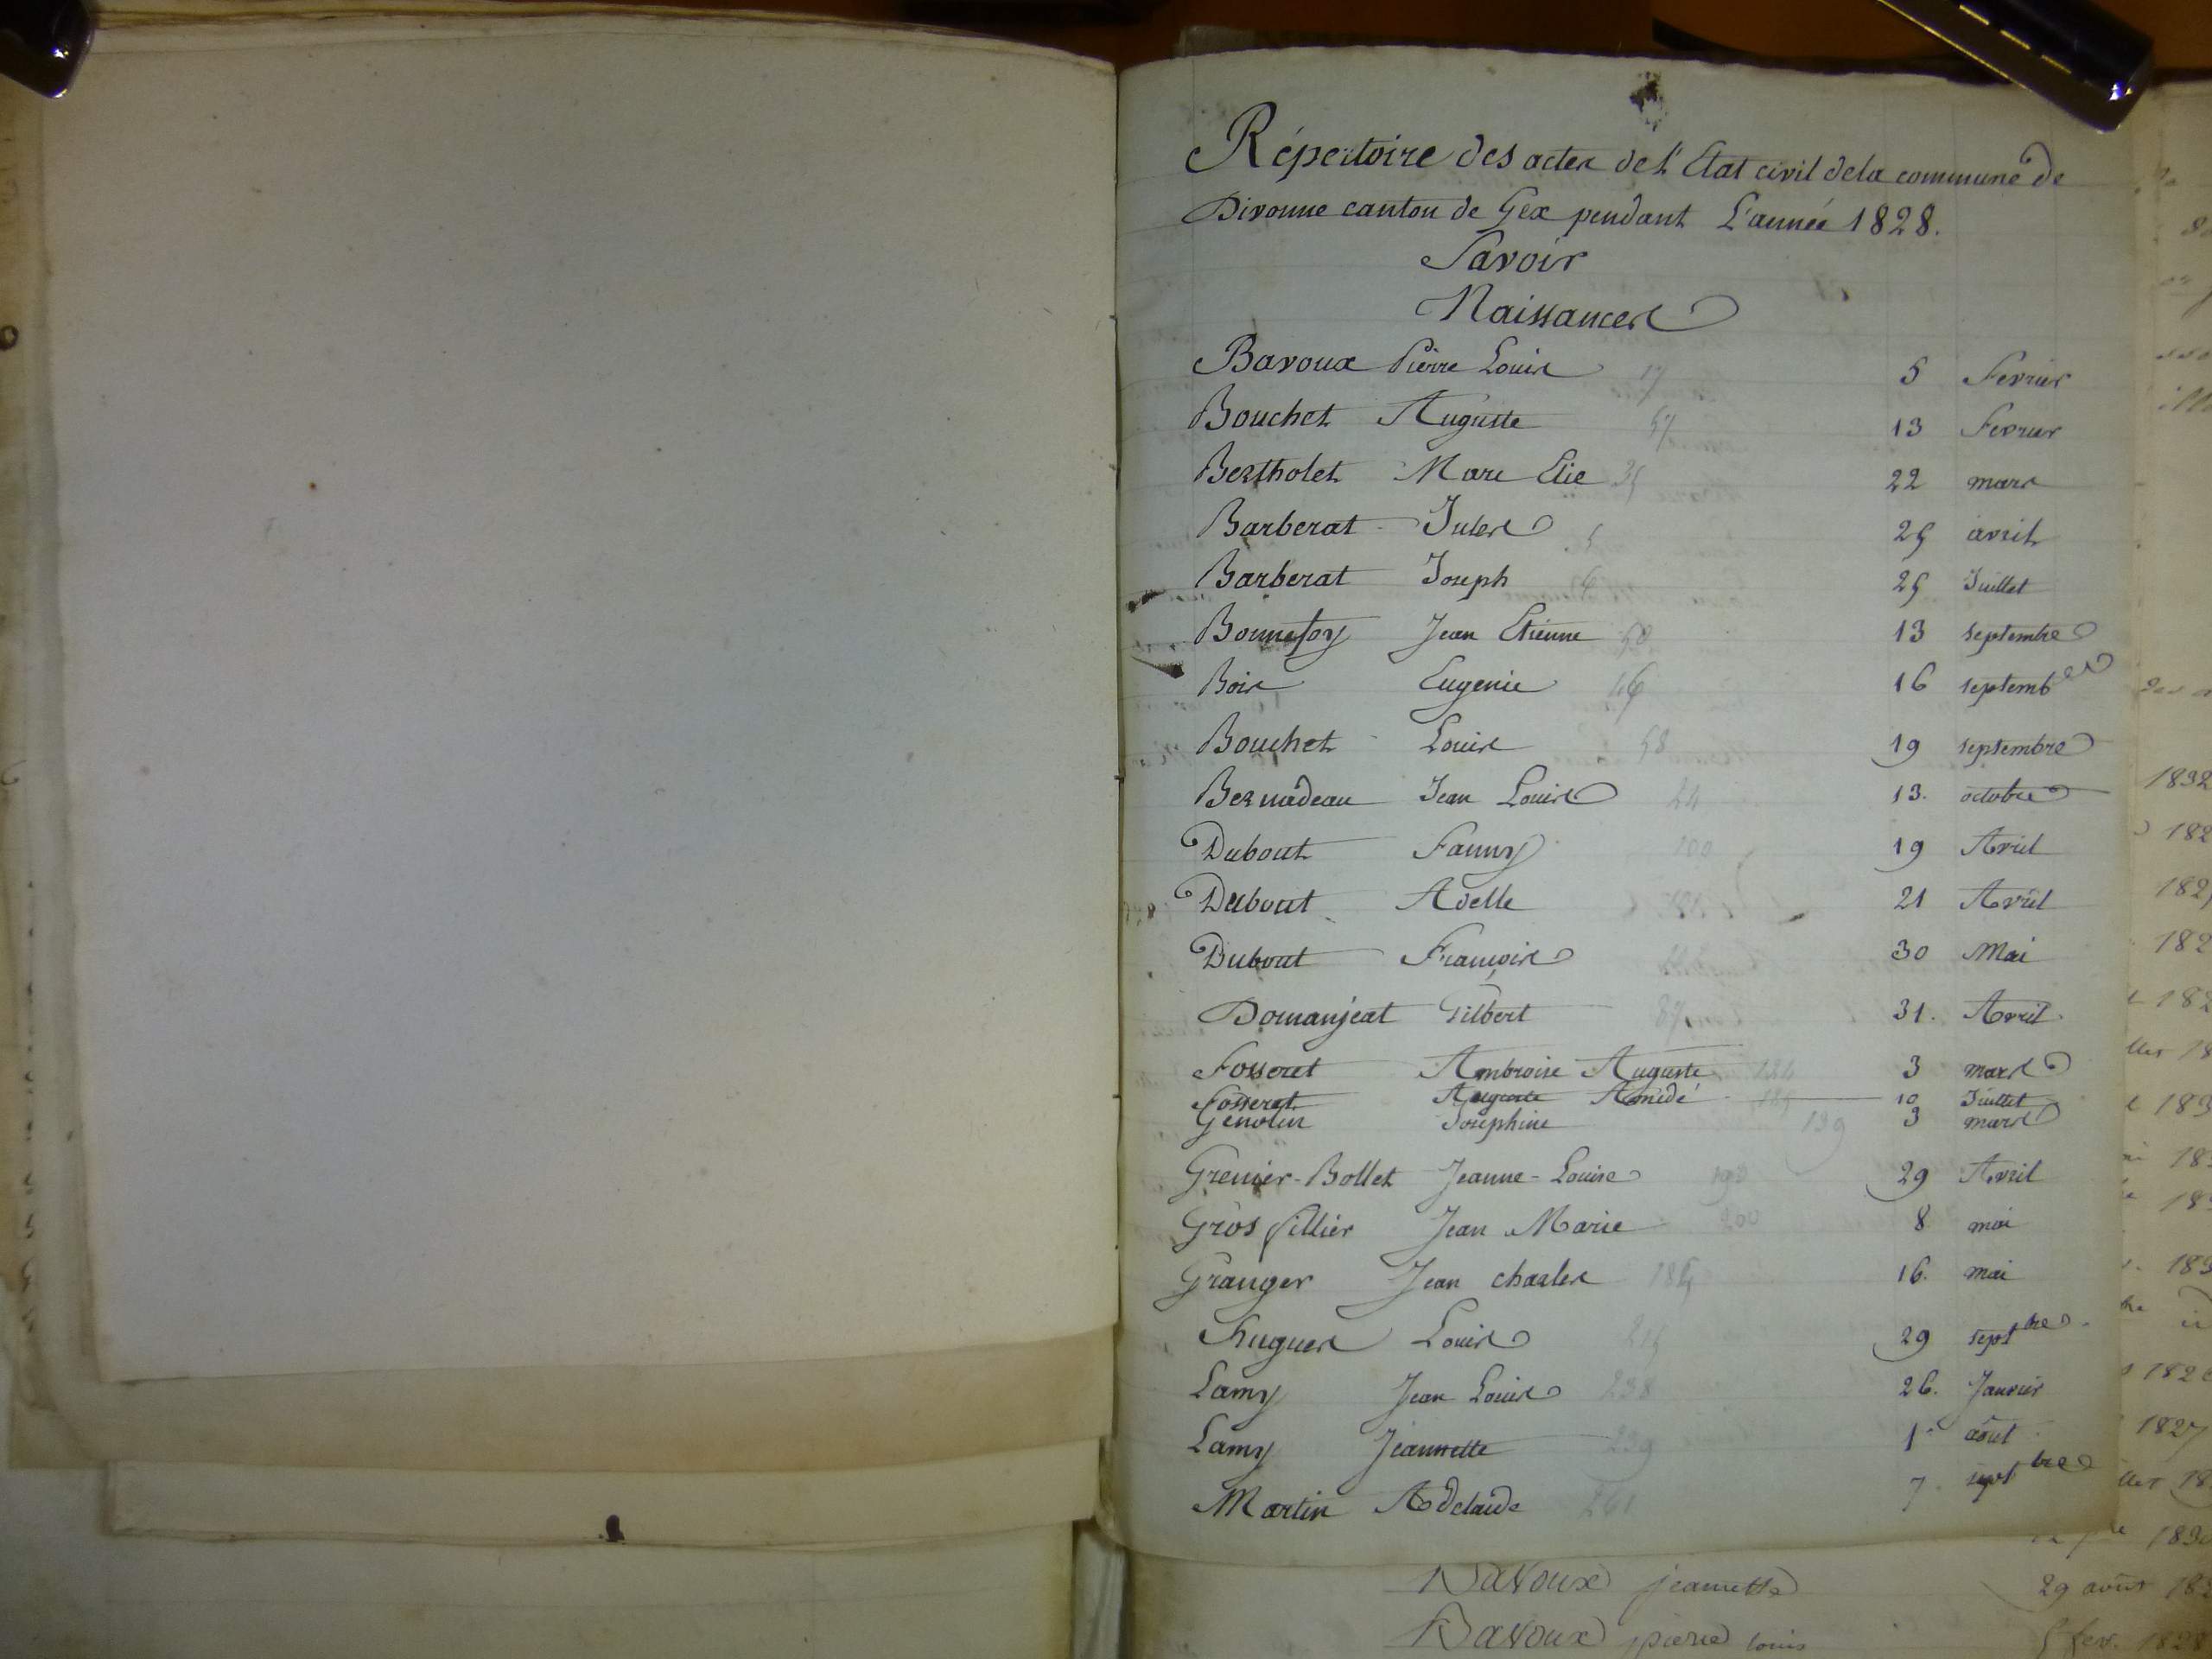 Répertoire des actes de l'Etat civil de la commune de
Divonne canton de Gex pendant L'année 1828.
Savoir
Naissances
Bavoux Pierre Louis 17 5 Fevrier
Bouchet Auguste 57 13 Fevrier
Bertholet Marc Elie 35 22 mars
Barberat Jules 5 25 avril
Barberat Joseph 6 25 Juillet
Bonnefoy Jean Etienne 50 13 septembre
Bois Eugenie 46 16 septembre
Bouchet Louis 58 19 septembre
Bernadeau Jean Louis 24 13. octobre
Dubout Fanny 100 19 Avril
Dubout Adelle 21 Avril
Dubout François 30 Mai
Domanjeat Gilbert 87 31. Avril
Fosseret Ambroise Auguste 184 3 mars
Fosseret Auguste Amédé 185 10 Juillet
Genolin Josephine 139 3 mars
Grenier-Bollet Jeanne-Louise 198 29 Avril
Gros fillier Jean Marie 200 8 mai
Granger Jean charles 185 16. mai
hugues Louis 215 29 septbre
Lamy Jean Louis 238 26. Janvier
Lamy Jeannette 239 1er août
Martin Adelaide 261 7. septbre
Bavoux jeannette 29 août 182
Bavoux pierre louis 5 fev. 1828
1832
182
182
182
182
1827